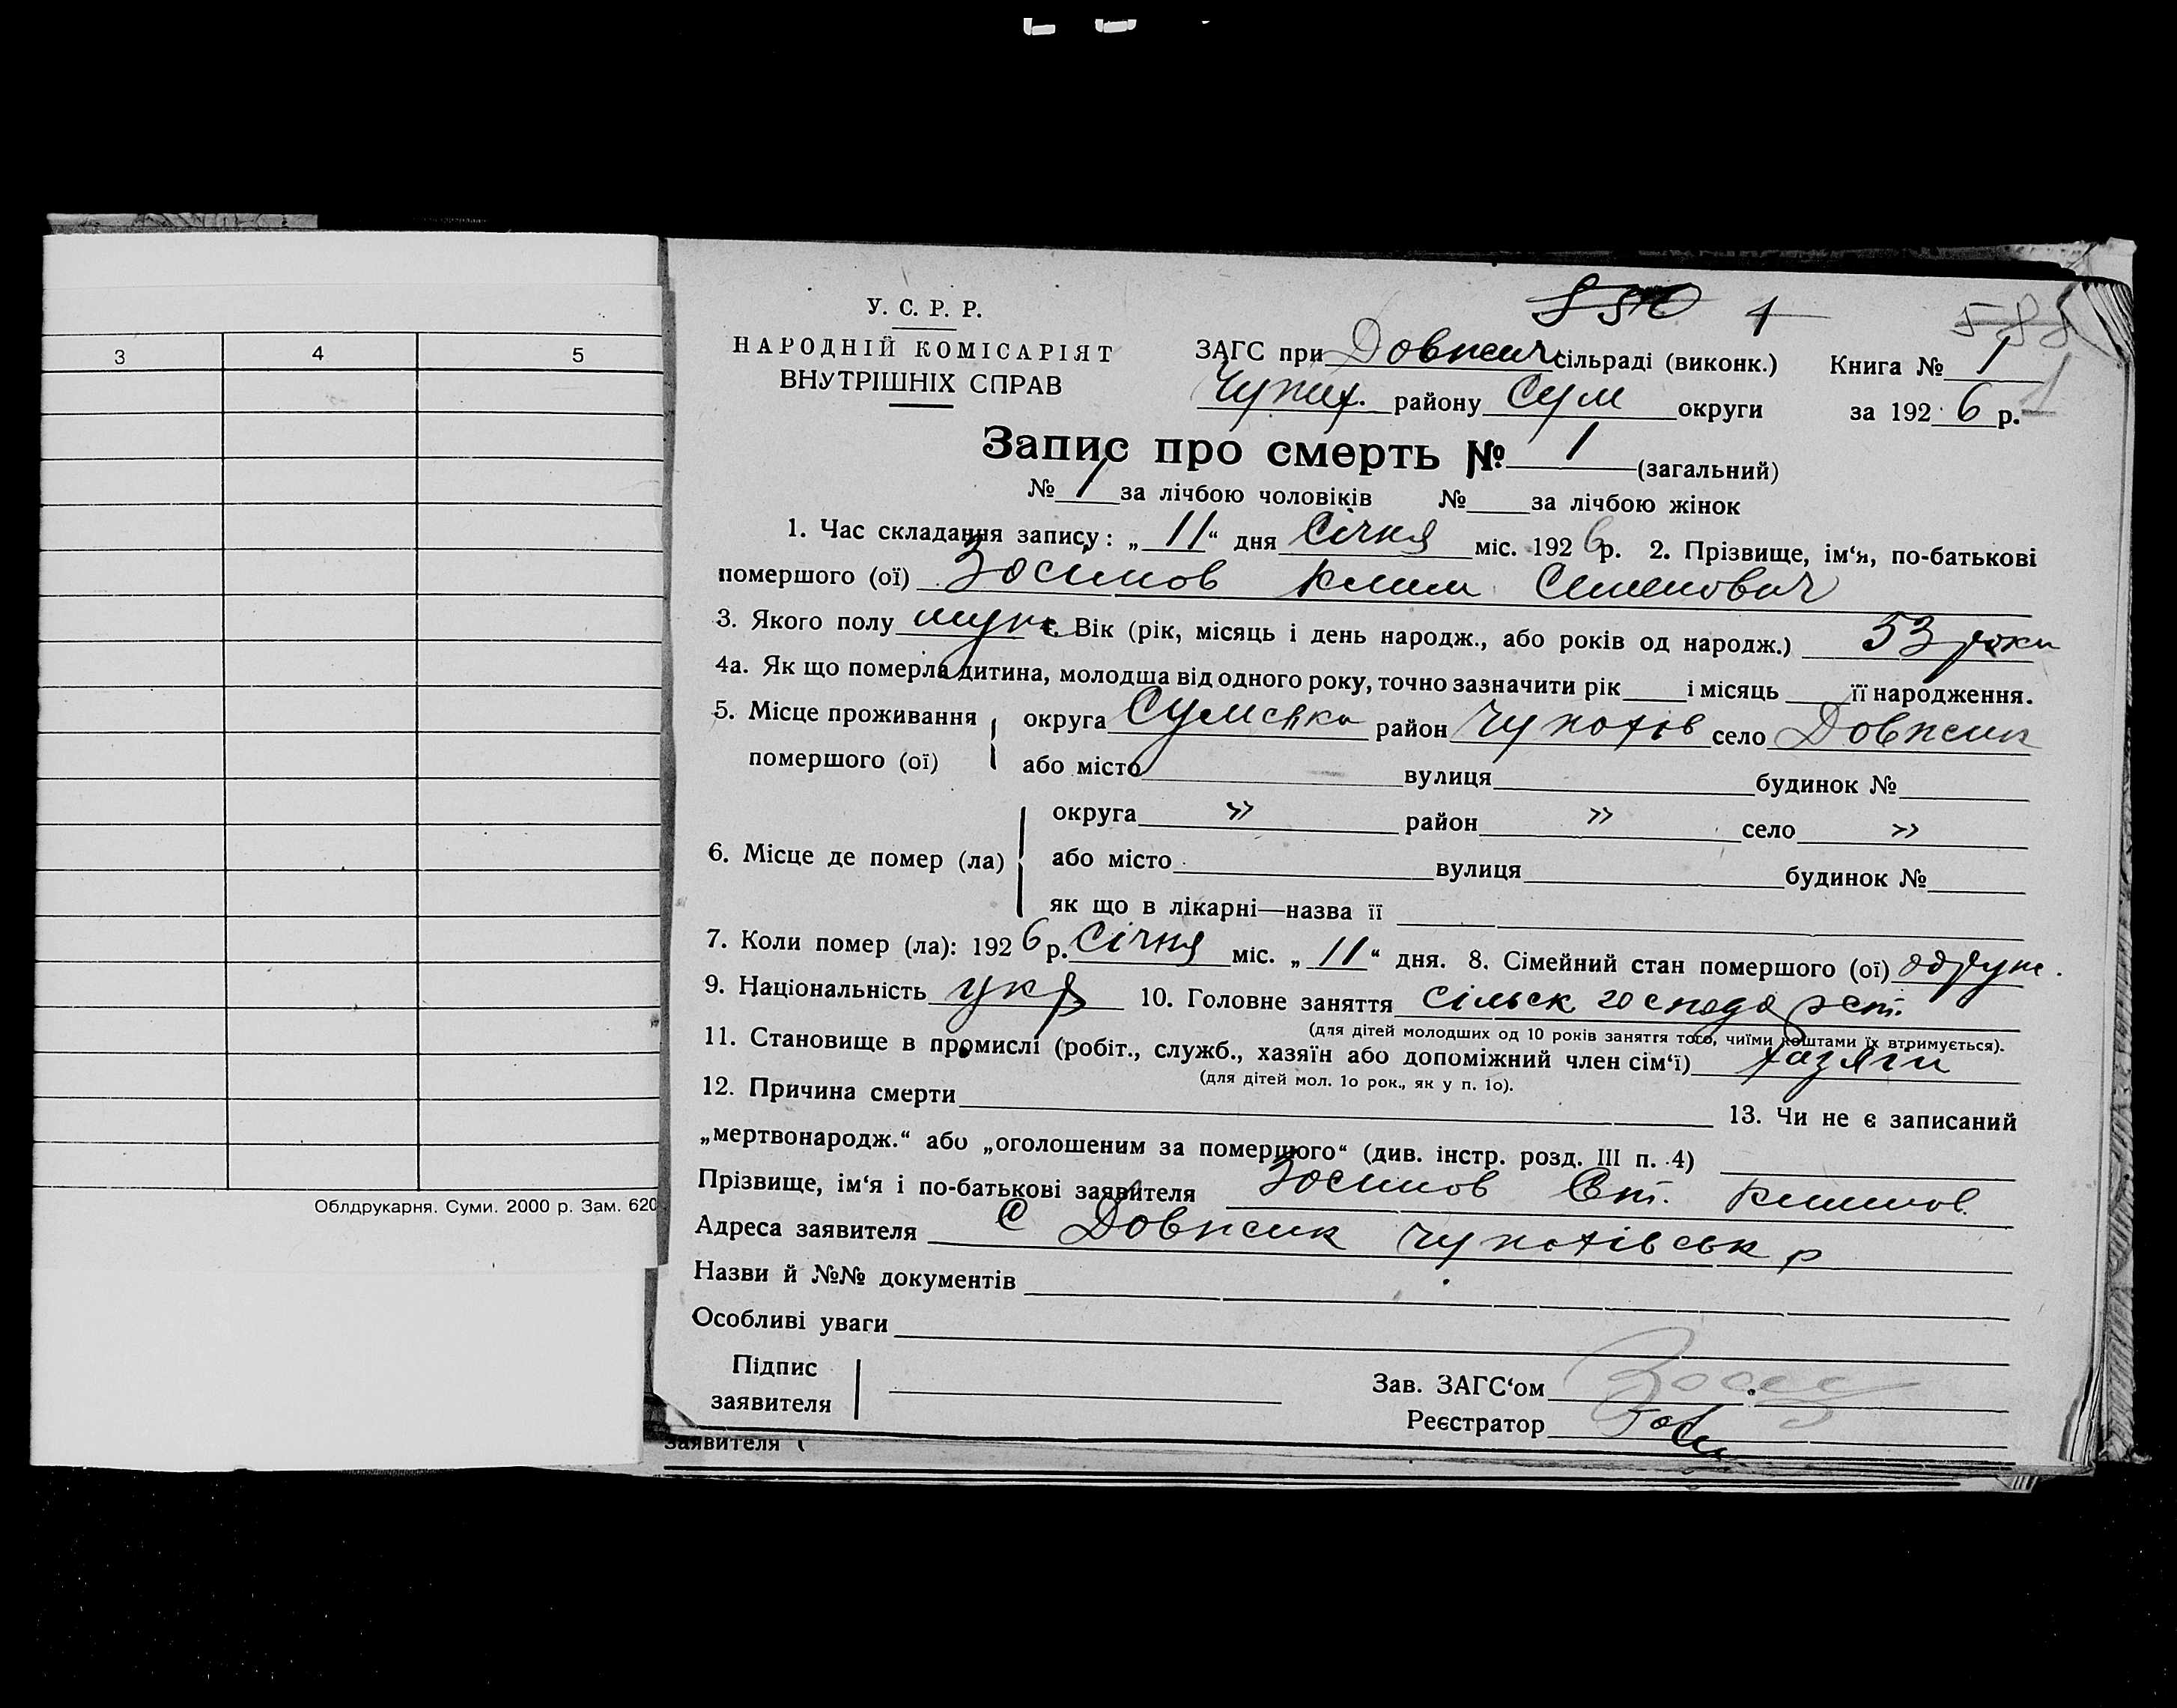 3 4 5
Облдрукарня. Суми. 2000 р. Зам. 620
У. С. Р. Р.
НАРОДНІЙ КОМІСАРІЯТ
ВНУТРІШНІХ СПРАВ
1 588
ЗАГС при Довжик сільраді (виконк.) Книга № 1
району Сум округи за 1926 р. 1
Запис про смерть № 1 (загальний)
№ 1 за лічбою чоловіків № за лічбою жінок
1. Час складання запису: „11“ дня Січня міс. 1926 р. 2. Прізвище, ім‘я, по-батькові
помершого (ої) Зосимов Клим Семенович
3. Якого полу муж 4. Вік (рік, місяць і день народж., або років од народж.) 53 роки
4а. Як що померла дитина, молодша від одного року, точно зазначити рік і місяць її народження.
5. Місце проживання округа Сумська район село Довжик
помершого (ої) або місто вулиця будинок №
округа » район » село »
6. Місце де помер (ла) або місто вулиця будинок №
як що в лікарні—назва її
7. Коли помер (ла): 1926 р. Січня міс. „11“ дня. 8. Сімейний стан помершого (ої) одруж.
9. Національність укр 10. Головне заняття сільск господарст.
(для дітей молодших од 10 років заняття того, чиїми коштами їх втримується).
11. Становище в промислі (робіт., служб., хазяїн або допоміжний член сім‘ї) хазяїн
(для дітей мол. 10 рок., як у п. 10).
12. Причина смерти 13. Чи не є записаний
„мертвонародж.“ або „оголошеним за помершого“ (див. інстр. розд. III п. 4)
Прізвище, ім‘я і по-батькові заявителя Зосимов Климов.
Адреса заявителя С Довжик р
Назви й №№ документів
Особливі уваги
Підпис
заявителя
Зав. ЗАГС‘ом
Реєстратор
заявителя